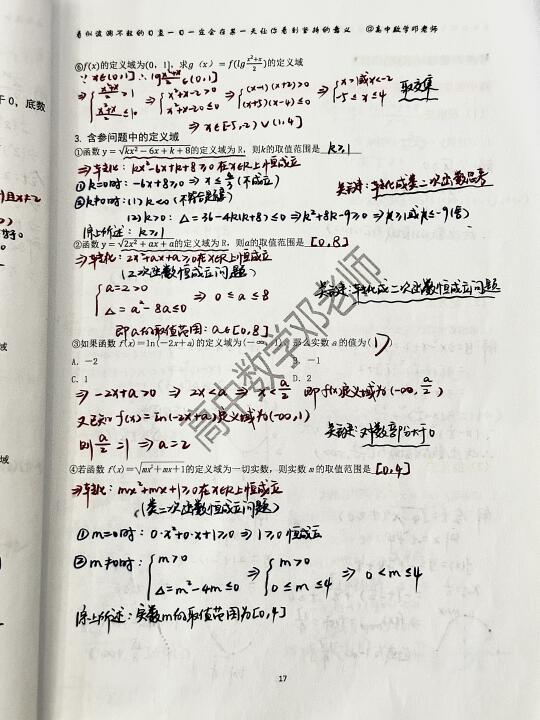 看似波澜不惊的日复一日一定会在某一天让你看到坚持的意义 @高中数学邓老师
⑥f(x)的定义域为(0, 1], 求g(x)=f(lg (x²+x)/2)的定义域
∵ x∈(0,1] ∴ lg (x²+x)/2 ∈(0,1]
⇒ { (x²+x)/2 > 1 (x²+x)/2 ≤ 10 ⇒ { x²+x-2>0 x²+x-20≤0 ⇒ { (x-1)(x+2)>0 (x+5)(x-4)≤0 ⇒ { x>1或x<-2 -5≤x≤4 取交集
⇒ x∈[-5,-2)∪(1,4]
3. 含参问题中的定义域
①函数 y=√(kx²-6x+k+8)的定义域为 R, 则k的取值范围是 k≥1
⇒转化: kx²-6x+k+8≥0在x∈R上恒成立
①k=0时: -6x+8≥0 ⇒ x≤4/3 (不成立)
关键: 转化成类二次函数思考
②k≠0时: (1) k<0 (不符合题意)
(2) k>0: Δ=36-4k(k+8)≤0 ⇒ k²+8k-9≥0 ⇒ k≥1或k≤-9(舍)
综上所述: k≥1
②函数 y=√(2x²+ax+a)的定义域为 R, 则a的取值范围是 [0,8]
⇒转化: 2x²+ax+a≥0在x∈R上恒成立
(二次函数恒成立问题)
{ a=2>0 Δ=a²-8a≤0 ⇒ 0≤a≤8
关键: 转化成二次函数恒成立问题
即a的取值范围: a∈[0,8]
③如果函数 f(x)=ln(-2x+a) 的定义域为(-∞, 1), 那么实数 a 的值为( )
A. -2
B. -1
C. 1
D. 2
⇒ -2x+a>0 ⇒ 2x<a ⇒ x<a/2 即f(x)定义域为(-∞, a/2)
又已知 f(x)=ln(-2x+a)定义域为(-∞,1)
则 a/2=1 ⇒ a=2
关键: 对数部分大于0
④若函数 f(x)=√(mx²+mx+1)的定义域为一切实数, 则实数 m 的取值范围是 [0,4]
⇒转化: mx²+mx+1≥0在x∈R上恒成立
(类二次函数恒成立问题)
①m=0时: 0·x²+0·x+1≥0 ⇒ 1≥0恒成立
②m≠0时: { m>0 Δ=m²-4m≤0 ⇒ { m>0 0≤m≤4 ⇒ 0<m≤4
综上所述: 实数m的取值范围为[0,4]
高中数学邓老师
17